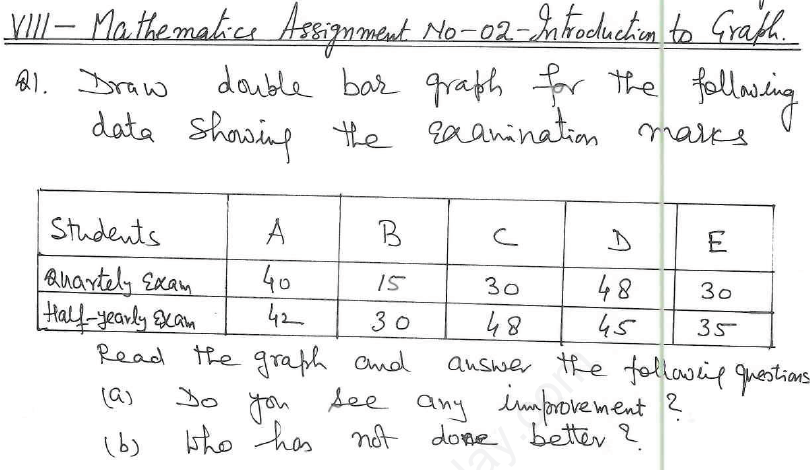 VIII - Mathematics Assignment No-02-Introduction to Graph.
Q1. Draw double bar graph for the following
data showing the examination marks
Students A B C D E
Quartely Exam 40 15 30 48 30
Half-yearly Exam 42 30 48 45 35
Read the graph and answer the following questions
(a) Do you see any improvement ?
(b) Who has not done better ?